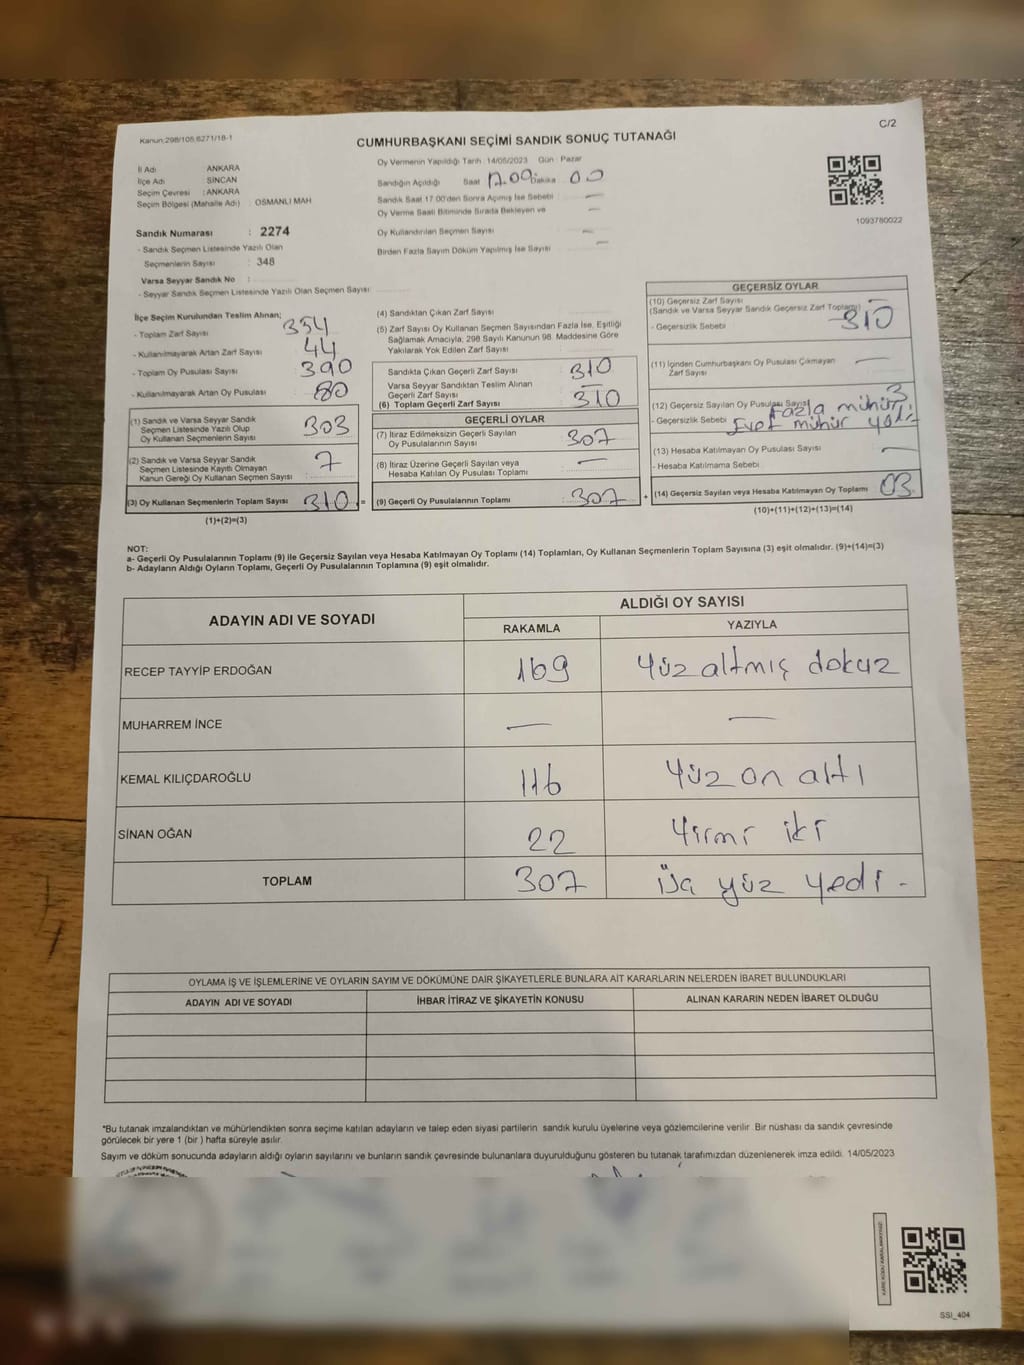 Kanun:298/105,6271/18-1
C/2
CUMHURBAŞKANI SEÇİMİ SANDIK SONUÇ TUTANAĞI
İl Adı : ANKARA
İlçe Adı : SİNCAN
Seçim Çevresi : ANKARA
Seçim Bölgesi (Mahalle Adı) : OSMANLI MAH
Sandık Numarası : 2274
- Sandık Seçmen Listesinde Yazılı Olan
Seçmenlerin Sayısı : 348
Varsa Seyyar Sandık No :
- Seyyar Sandık Seçmen Listesinde Yazılı Olan Seçmen Sayısı :
Oy Vermenin Yapıldığı Tarih : 14/05/2023 Gün : Pazar
Sandığın Açıldığı Saat 17.00 Dakika 00
Sandık Saat 17:00'den Sonra Açılmış İse Sebebi —
Oy Verme Saati Bitiminde Sırada Bekleyen ve —
Oy Kullandırılan Seçmen Sayısı —
Birden Fazla Sayım Döküm Yapılmış İse Sayısı —
1093780022
İlçe Seçim Kurulundan Teslim Alınan;
- Toplam Zarf Sayısı 354
- Kullanılmayarak Artan Zarf Sayısı 44
- Toplam Oy Pusulası Sayısı 390
- Kullanılmayarak Artan Oy Pusulası 80
(1) Sandık ve Varsa Seyyar Sandık
Seçmen Listesinde Yazılı Olup
Oy Kullanan Seçmenlerin Sayısı 303
(2) Sandık ve Varsa Seyyar Sandık
Seçmen Listesinde Kayıtlı Olmayan
Kanun Gereği Oy Kullanan Seçmen Sayısı 7
(3) Oy Kullanan Seçmenlerin Toplam Sayısı 310 =
(1)+(2)=(3)
(4) Sandıktan Çıkan Zarf Sayısı
(5) Zarf Sayısı Oy Kullanan Seçmen Sayısından Fazla İse, Eşitliği
Sağlamak Amacıyla; 298 Sayılı Kanunun 98. Maddesine Göre
Yakılarak Yok Edilen Zarf Sayısı
Sandıkta Çıkan Geçerli Zarf Sayısı 310
Varsa Seyyar Sandıktan Teslim Alınan
Geçerli Zarf Sayısı —
(6) Toplam Geçerli Zarf Sayısı 310
GEÇERLİ OYLAR
(7) İtiraz Edilmeksizin Geçerli Sayılan
Oy Pusulasının Sayısı 307
(8) İtiraz Üzerine Geçerli Sayılan veya
Hesaba Katılan Oy Pusulası Toplamı —
(9) Geçerli Oy Pusulalarının Toplamı : 307 +
GEÇERSİZ OYLAR
(10) Geçersiz Zarf Sayısı —
(Sandık ve Varsa Seyyar Sandık Geçersiz Zarf Toplamı) 310
- Geçersizlik Sebebi
(11) İçinden Cumhurbaşkanı Oy Pusulası Çıkmayan
Zarf Sayısı —
(12) Geçersiz Sayılan Oy Pusulası Sayısı 3
- Geçersizlik Sebebi Fazla mühür
Evet mühür
(13) Hesaba Katılmayan Oy Pusulası Sayısı —
- Hesaba Katılmama Sebebi
(14) Geçersiz Sayılan veya Hesaba Katılmayan Oy Toplamı 03
(10)+(11)+(12)+(13)=(14)
NOT:
a- Geçerli Oy Pusulalarının Toplamı (9) ile Geçersiz Sayılan veya Hesaba Katılmayan Oy Toplamı (14) Toplamları, Oy Kullanan Seçmenlerin Toplam Sayısına (3) eşit olmalıdır. (9)+(14)=(3)
b- Adayların Aldığı Oyların Toplamı, Geçerli Oy Pusulalarının Toplamına (9) eşit olmalıdır.
ADAYIN ADI VE SOYADI
ALDIĞI OY SAYISI
RAKAMLA YAZIYLA
RECEP TAYYİP ERDOĞAN 169 Yüz altmış dokuz
MUHARREM İNCE — —
KEMAL KILIÇDAROĞLU 116 Yüz on altı
SİNAN OĞAN 22 Yirmi iki
TOPLAM 307 üç yüz yedi -
OYLAMA İŞ VE İŞLEMLERİNE VE OYLARIN SAYIM VE DÖKÜMÜNE DAİR ŞİKAYETLERLE BUNLARA AİT KARARLARIN NELERDEN İBARET BULUNDUKLARI
ADAYIN ADI VE SOYADI İHBAR İTİRAZ VE ŞİKAYETİN KONUSU ALINAN KARARIN NEDEN İBARET OLDUĞU
*Bu tutanak imzalandıktan ve mühürlendikten sonra seçime katılan adayların ve talep eden siyasi partilerin sandık kurulu üyelerine veya gözlemcilerine verilir. Bir nüshası da sandık çevresinde
görülecek bir yere 1 (bir ) hafta süreyle asılır.
Sayım ve döküm sonucunda adayların aldığı oyların sayılarını ve bunların sandık çevresinde bulunanlara duyurulduğunu gösteren bu tutanak tarafımızdan düzenlenerek imza edildi. 14/05/2023
SSI_404